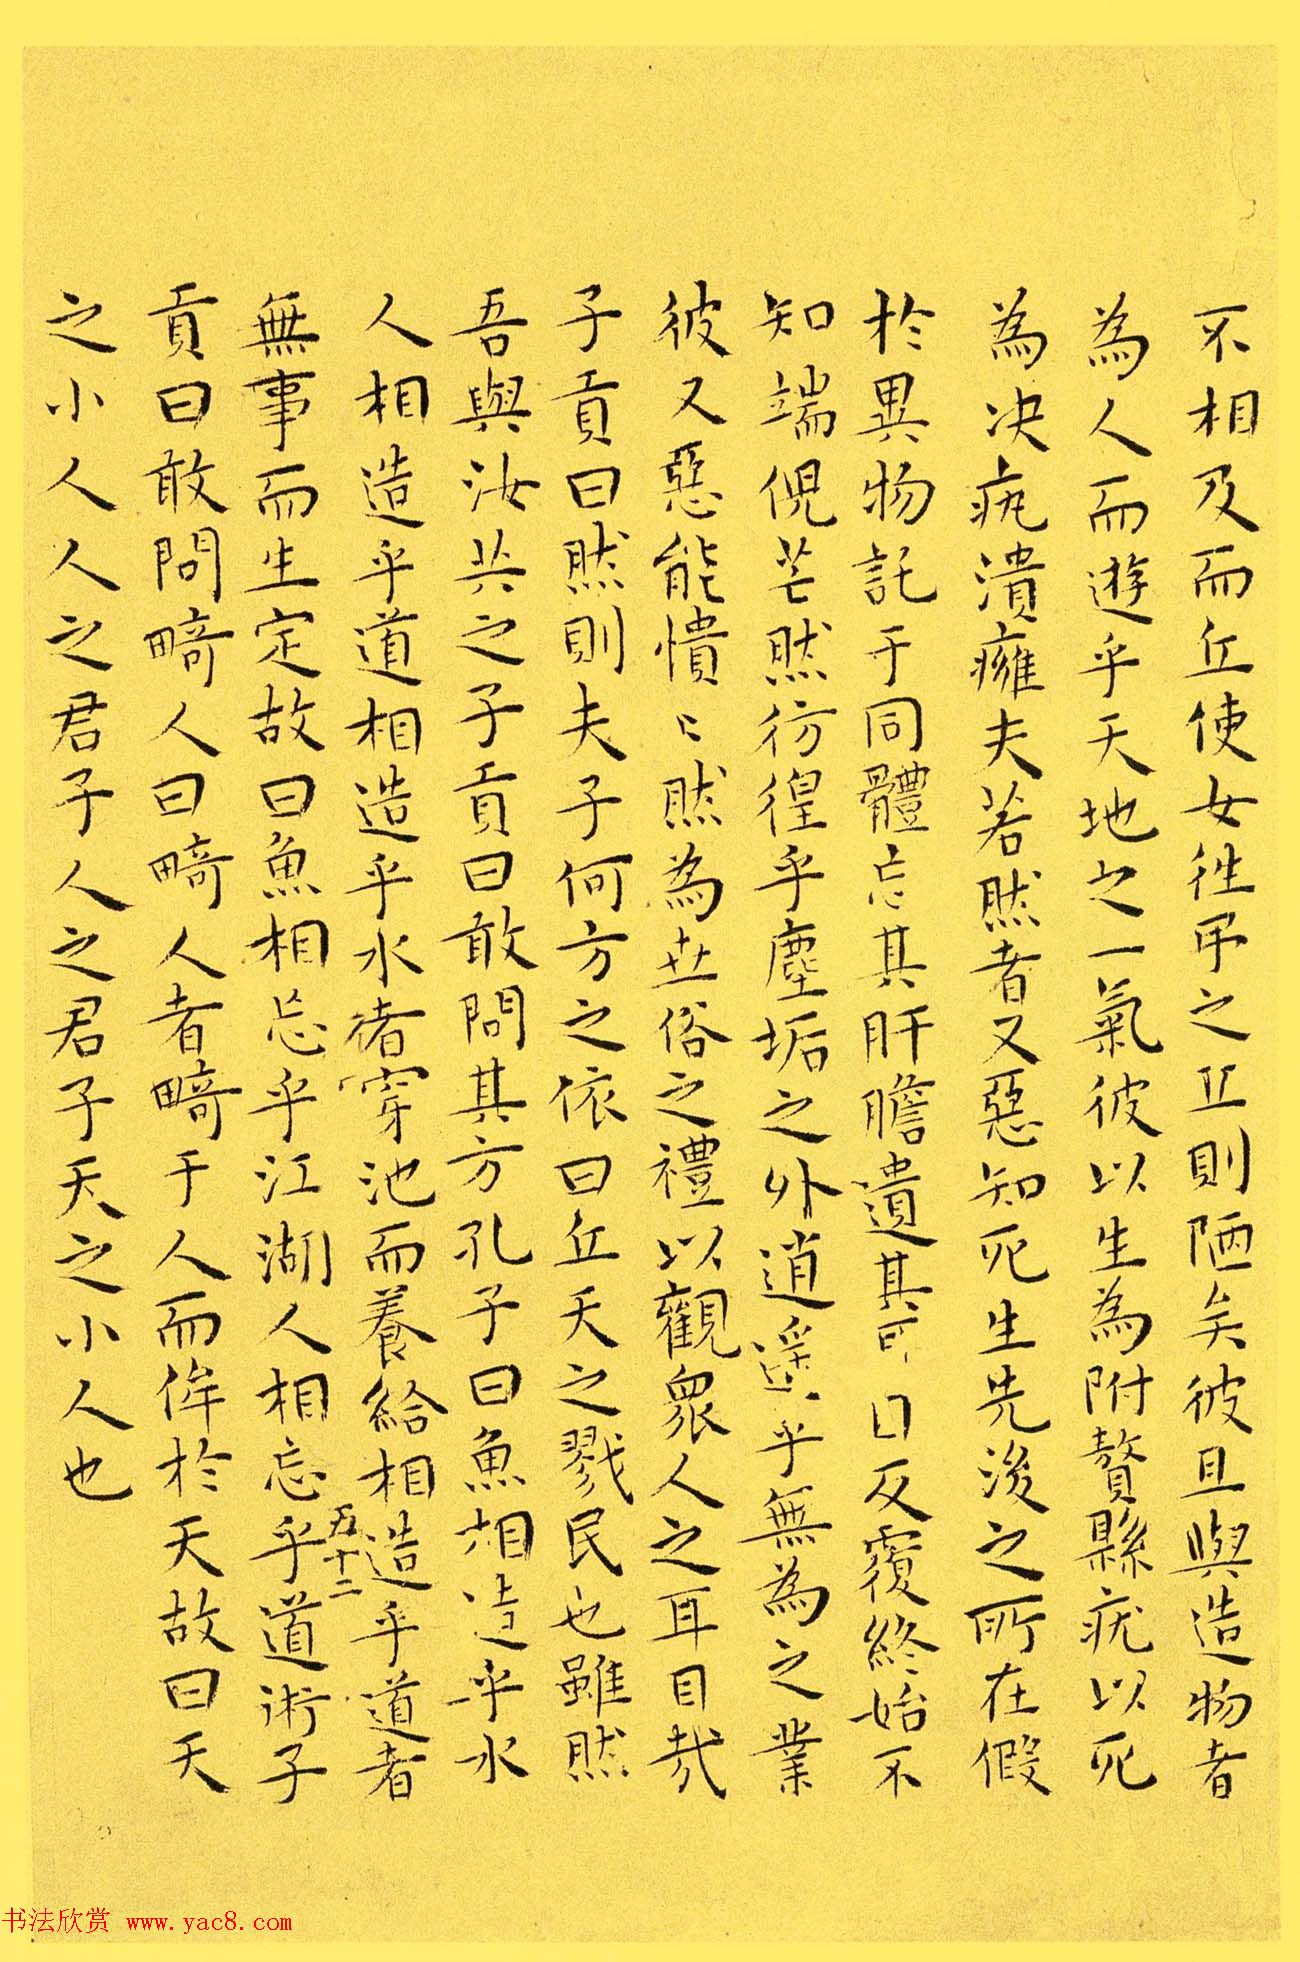 不相及而丘使女往吊之丘則陋矣彼且與造物者
為人而遊乎天地之一氣彼以生為附贅縣疣以死
為决疣潰癰夫若然者又惡知死生先後之所在假
於異物託于同體忘其肝膽遺其耳目反覆終始不
知端倪芒然彷徨乎塵垢之外逍遥乎無為之業
彼又惡能憒〻然為世俗之禮以觀眾人之耳目哉
子貢曰然則夫子何方之依曰丘天之戮民也雖然
吾與汝共之子貢曰敢問其方孔子曰魚相造乎水
人相造乎道相造乎水者穿池而養給相造乎道者
無事而生定故曰魚相忘乎江湖人相忘乎道術子
五十二
貢曰敢問畸人曰畸人者畸于人而侔於天故曰天
之小人人之君子人之君子天之小人也
书法欣赏 www.yac8.com